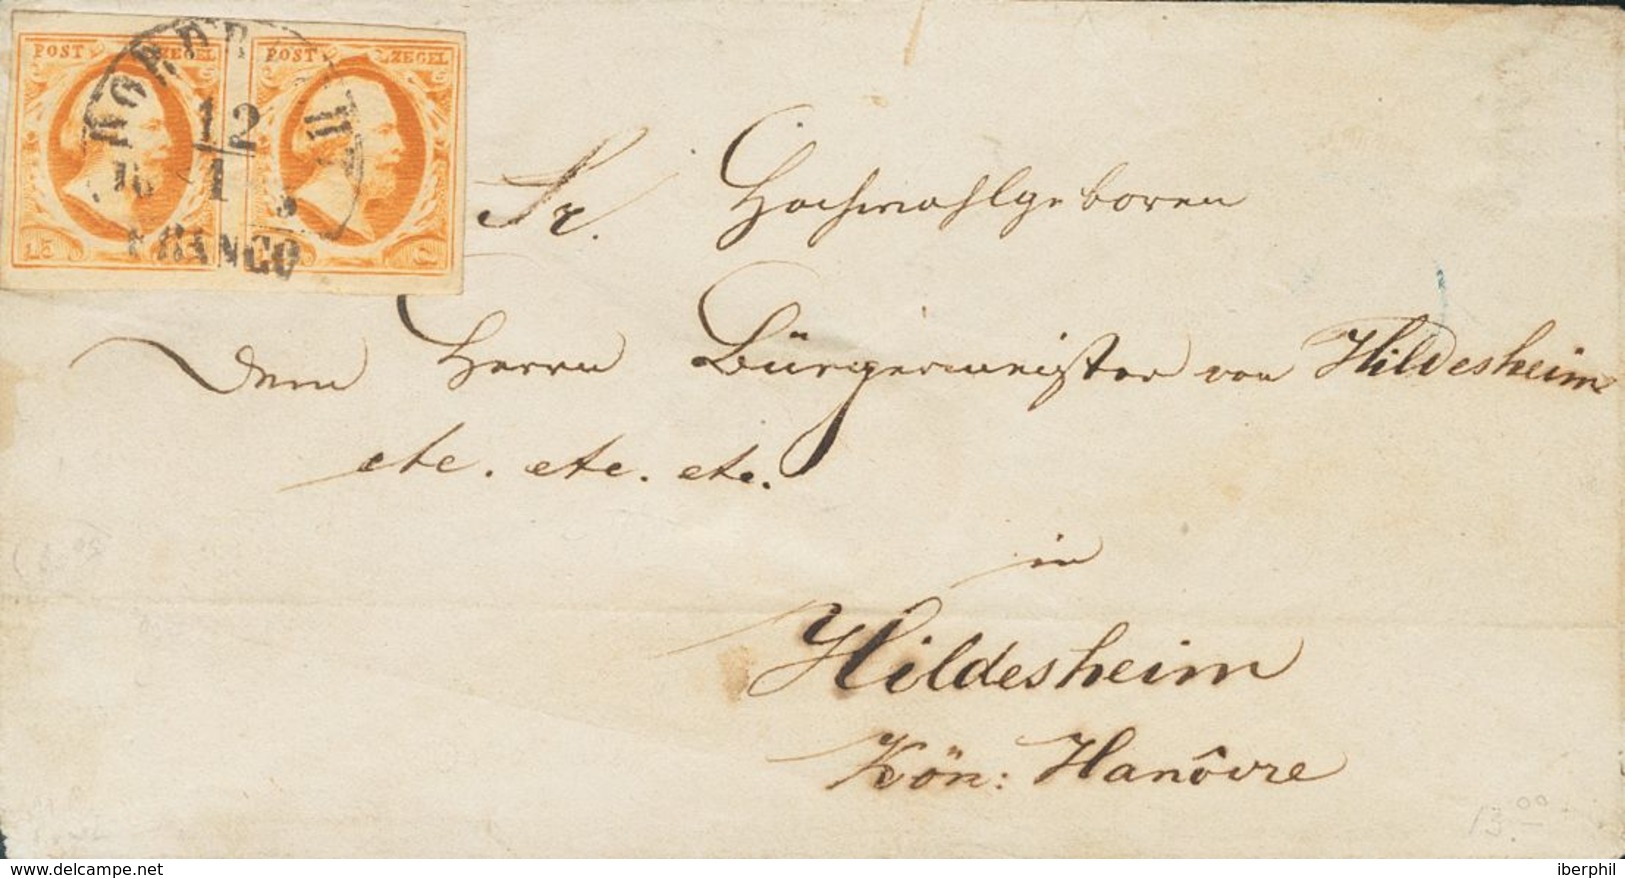 POST ZEGEL POST ZEGEL
12
1
FRANCO
Sr. Hochwohlgeboren
Dem Herrn Bürgermeister von Hildesheim
etc. etc. etc.
in
Hildesheim
Kön: Hanôvre
delcampe.net
iberphil